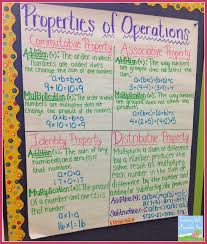 Properties of Operations
Commutative Property
Addition (+): The order in
which numbers are added does
not change the sum of the numbers
a+b=b+a
9+10=10+9
Multiplication (x): The order in
which numbers are
multiplied does not
change the product of
the numbers.
axb=bxa
10x9=9x10
Associative Property
Addition (+): The way numbers
are grouped does not affect the
sum.
a+(b+c)=(a+b)+c
Multiplication (x):
The way numbers
are grouped does
not affect the
product.
Identity Property
Addition (+): The sum of any
number and zero is that
number.
a+0=a
Multiplication (x): The
product of any
number and 1 is
that number.
ax1=a
16x1=16
Distributive Property
Multiplying a sum or difference
by a number produces the
same result as multiplying
each number in the sum or
difference by the number
and adding or subtracting the
products.
Addition:
Subtraction: